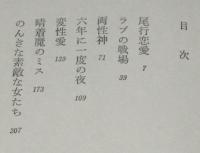 目次
尾行恋愛 7
ラブの戦場 39
両性神 71
六年に一度の夜 109
変性愛 139
晴着魔のミス 173
のんきな素敵な女たち 207